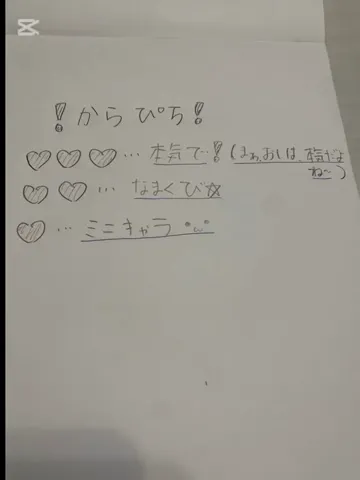 ！からぴち！
♡♡♡…本気で！(まぁ、おしは、本気だよ
ね〜)
♡♡…なまくび☆
♡…ミニキャラ °ω°